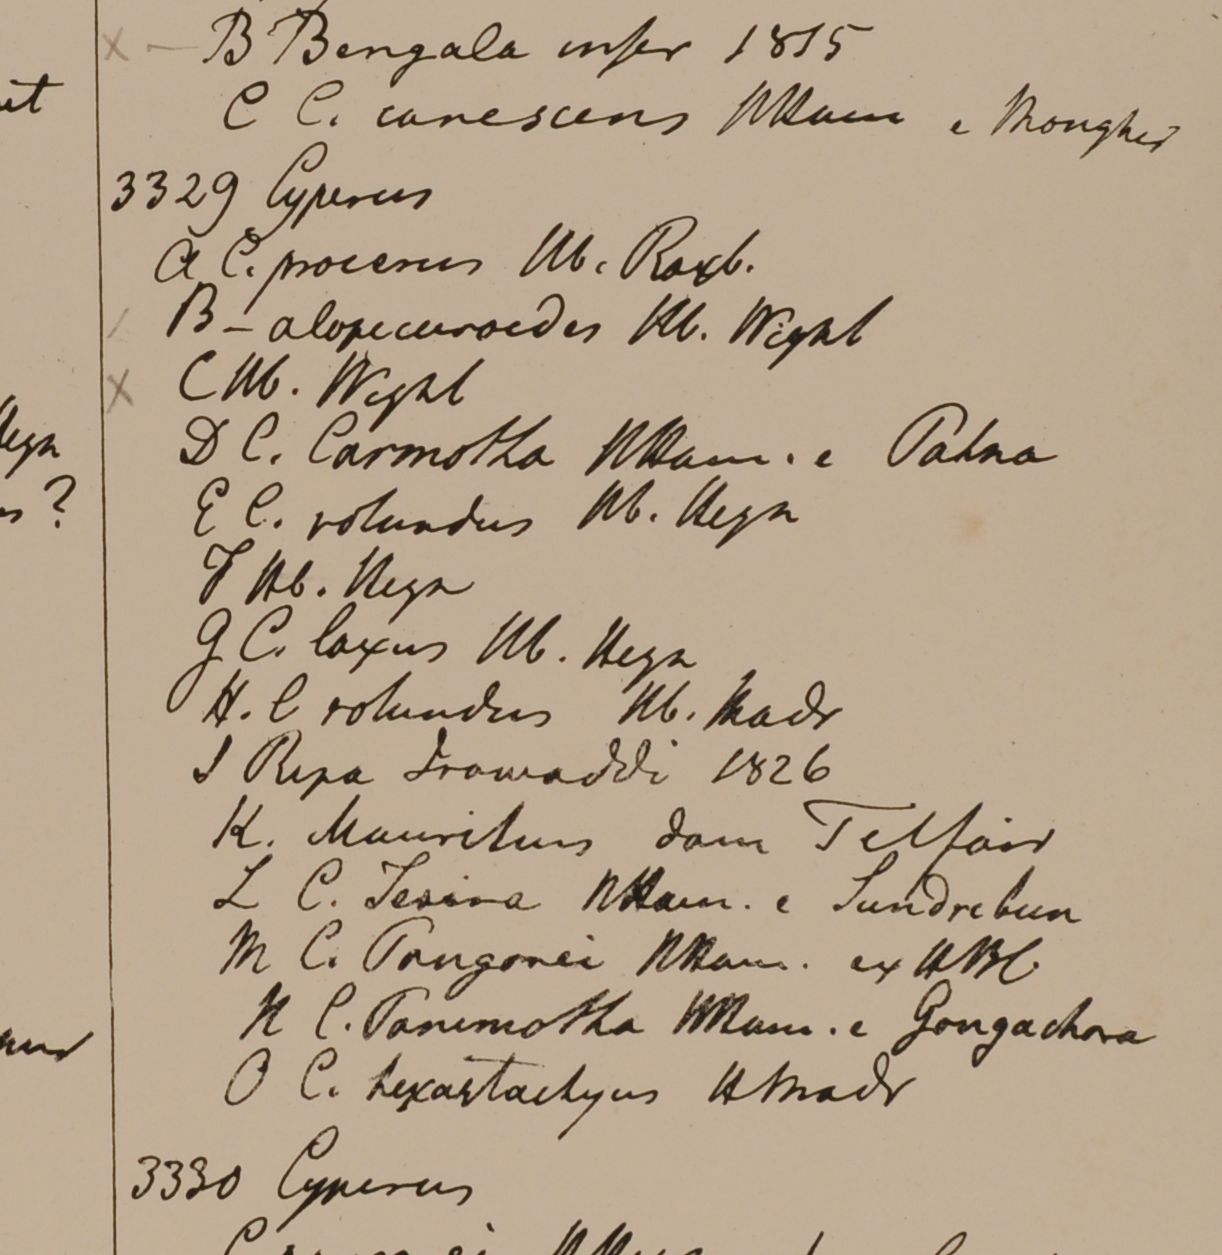 B Bengala infer 1815
it
C C. canescens HHam e Mongher
3329 Cyperus
A C. procerus Hb. Roxb.
B - alopecuroides Hb. Wight
C Hb. Wight
Heyn
D C. Carmotha HHam. e Patna
s?
E C. rotundus Hb. Heyn
F Hb. Heyn
G C. laxus Hb. Heyn
H. C rotundus Hb. Madr
I Ripa Irawaddi 1826
K. Mauritius dam Telfair
L C. HHam. e Sundrebun
M C. Pangorei HHam. ex HBC
N C. Panimotha HHam. e Gongachora
O C. hexastachyus HMadr
3330 Cyperus